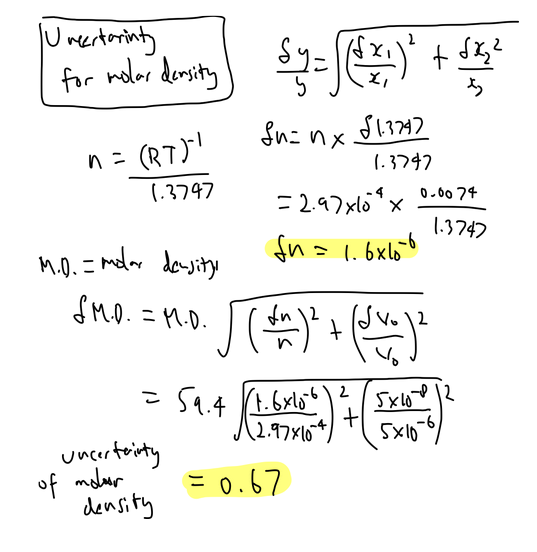 Uncertainty
for molar density
δy/y = √((δx₁/x₁)² + δx₂²/x₂)
n = (RT)⁻¹/1.3747
δn = n × δ1.3747/1.3747
= 2.97×10⁻⁴ × 0.0074/1.3747
δn = 1.6×10⁻⁶
M.D. = molar density
δM.D. = M.D. √((δn/n)² + (δV₀/V₀)²)
= 59.4 √((1.6×10⁻⁶/2.97×10⁻⁴)² + (5×10⁻⁸/5×10⁻⁶)²)
uncertainty
of molar
density
= 0.67